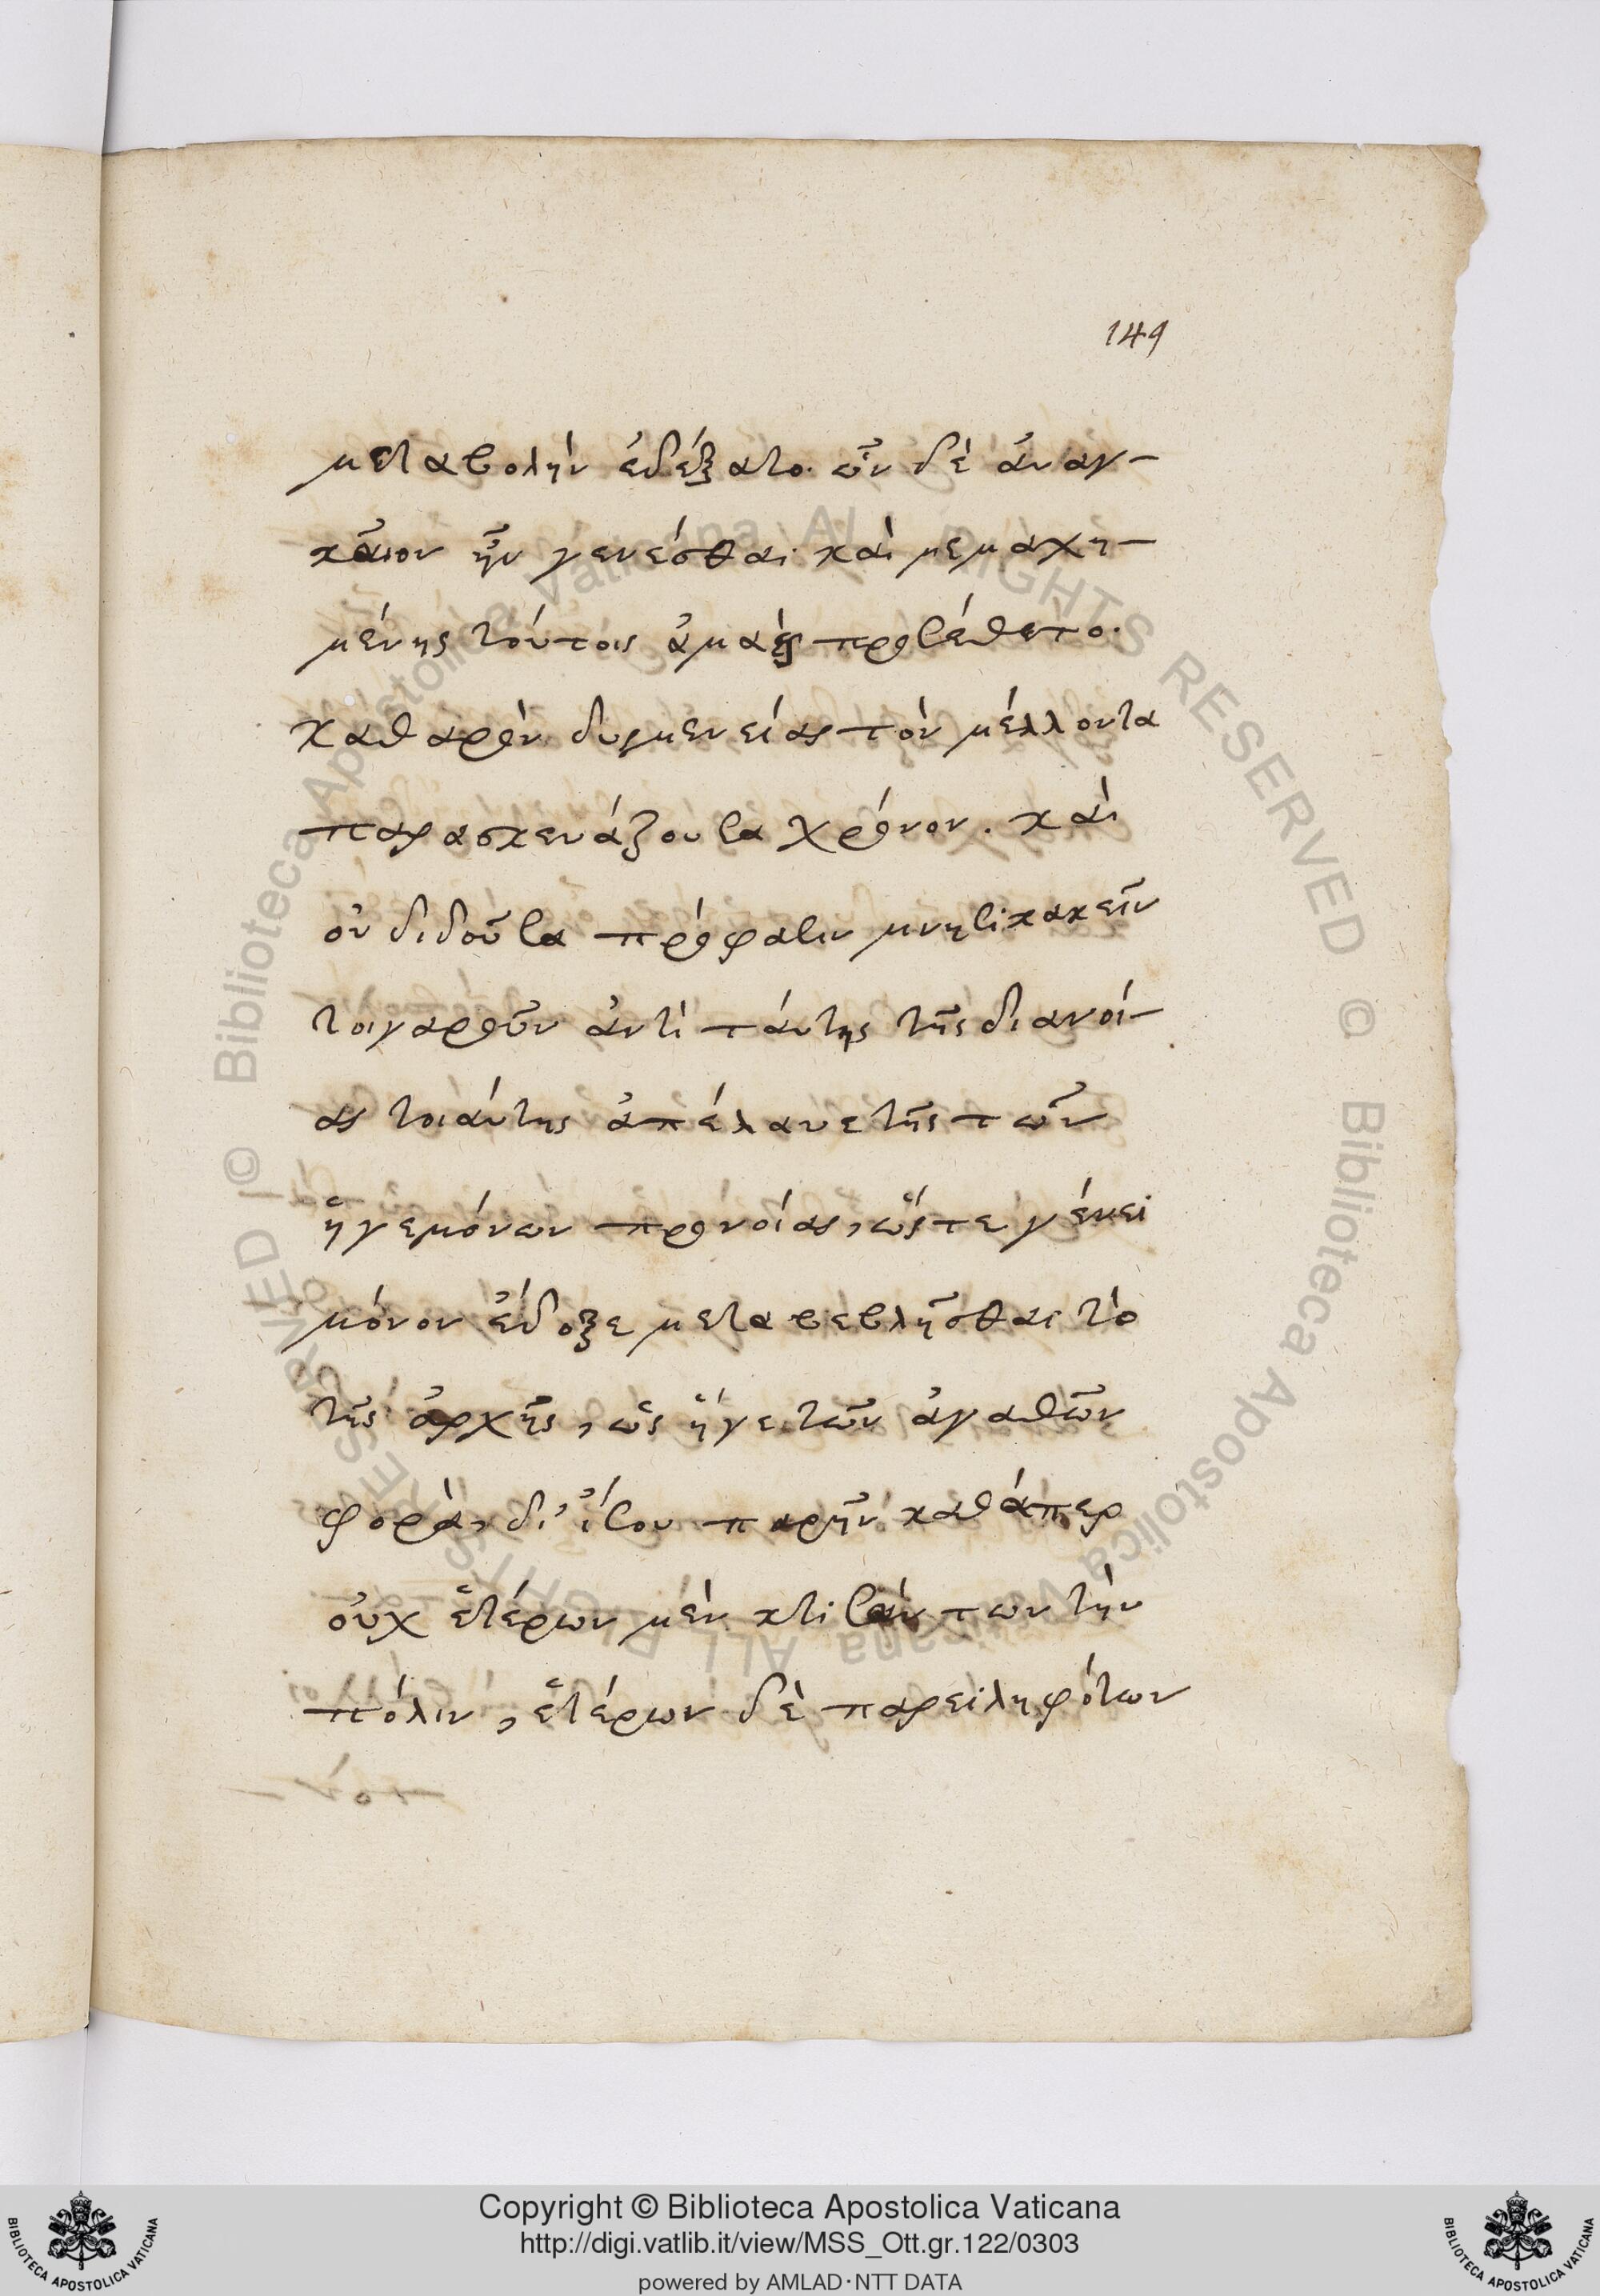 149
μεταβολὴν ἐδέξατο. ὧν δὲ ἀναγ-
καῖον ἦν γενέσθαι καὶ μεμαχη-
μένης τούτοις ἅμα προσέθετο.
καθαρὸν δυσμενείας τὸν μέλλοντα
παρασκευάζουσα χρόνον. καὶ
οὐ διδοῦσα πρόφασιν μνησικακεῖν
τοιγαροῦν ἀντὶ ταύτης τῆς διανοί-
ας τοιαύτης ἀπέλαυε τῆς τῶν
ἡγεμόνων προνοίας, ὥστε γένει
μόνον ἔδοξε μεταβεβλῆσθαι τὸ
τῆς ἀρχῆς, ὡς ἥγε τῶν ἀγαθῶν
φορὰ, δι' ἴσου παρῆν καθάπερ
οὐχ ἑτέρων μὲν κτισάντων τὴν
πόλιν, ἑτέρων δὲ παρειληφότων
Copyright © Biblioteca Apostolica Vaticana
http://digi.vatlib.it/view/MSS_Ott.gr.122/0303
powered by AMLAD·NTT DATA
BIBLIOTECA APOSTOLICA VATICANA
BIBLIOTECA APOSTOLICA VATICANA
© Biblioteca Apostolica Vaticana ALL RIGHTS RESERVED
© Biblioteca Apostolica Vaticana ALL RIGHTS RESERVED